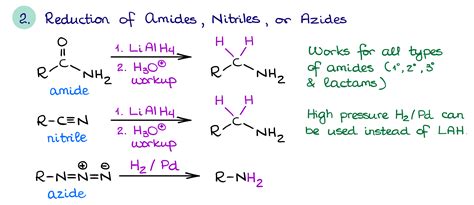 2. Reduction of Amides, Nitriles, or Azides
O
R C NH₂
amide
1. LiAlH₄
2. H₃O⊕
workup
H H
R C NH₂
Works for all types
of amides (1°, 2°, 3°
& lactams)
R–C≡N
nitrile
1. LiAlH₄
2. H₃O⊕
workup
H H
R C NH₂
High pressure H₂/Pd can
be used instead of LAH.
R–N=N=N
⊕ ⊖
azide
H₂ / Pd
R–NH₂